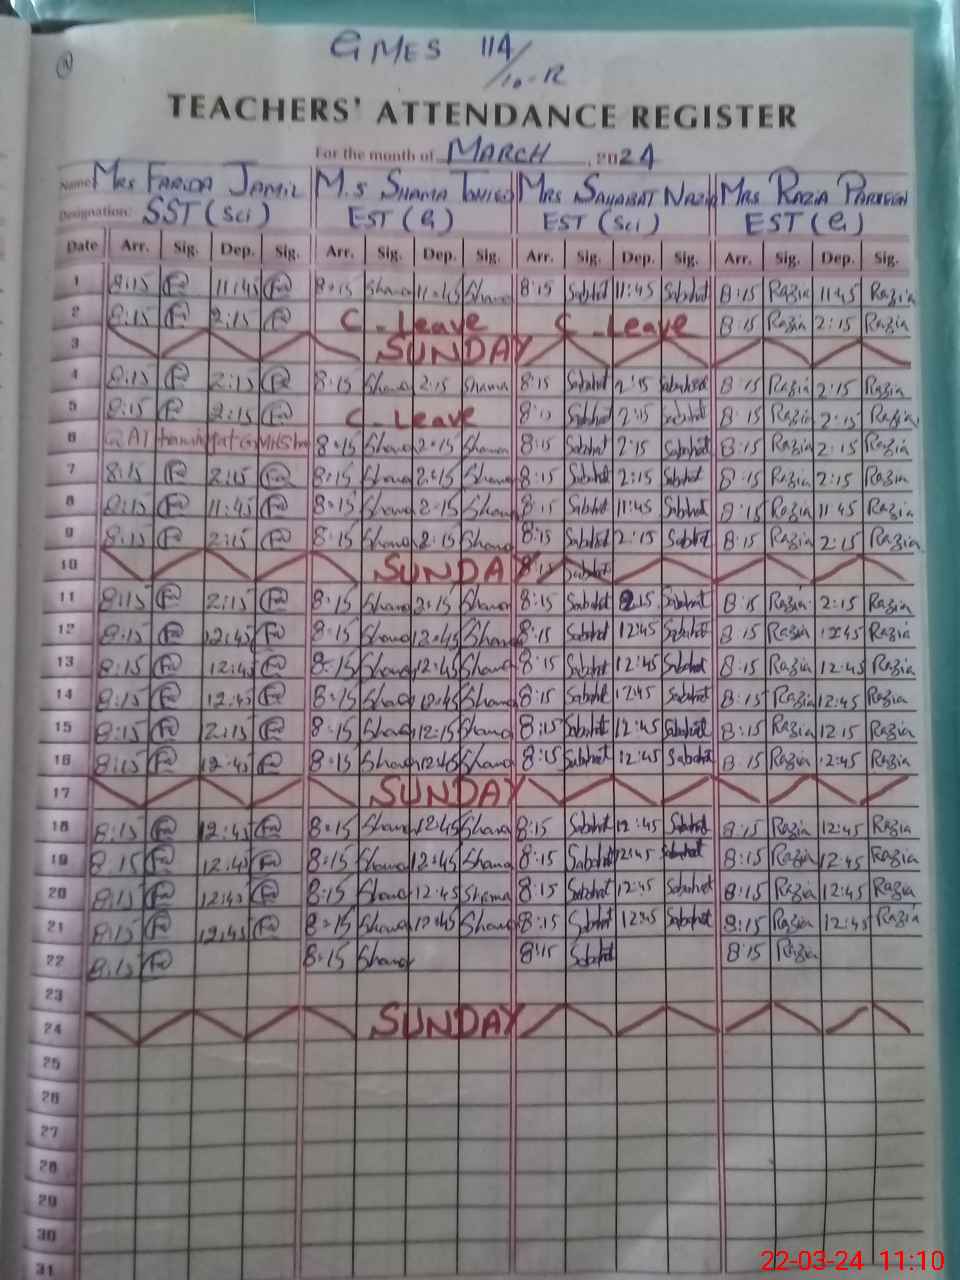 GMES 114/10-R
TEACHERS' ATTENDANCE REGISTER
For the month of MARCH, 2024
Name: Mrs FARIDA JAMIL M.s SHAMA Mrs SAHABAT Mrs RAZIA PARVEEN
Designation: SST (Sci) EST (G) EST (Sci) EST (G)
Date Arr. Sig. Dep. Sig. Arr. Sig. Dep. Sig. Arr. Sig. Dep. Sig. Arr. Sig. Dep. Sig.
1 8:15 11:45 8:15 Shama 11:45 Shama 8:15 Sabahat 11:45 Sabahat 8:15 Razia 11:45 Razia
2 8:15 2:15 C-Leave C-Leave 8:15 Razia 2:15 Razia
3 SUNDAY
4 8:15 2:15 8:15 Shama 2:15 Shama 8:15 Sabahat 2:15 Sabahat 8:15 Razia 2:15 Razia
5 8:15 2:15 C-Leave 8:15 Sabahat 2:15 Sabahat 8:15 Razia 2:15 Razia
6 8:15 Shama 2:15 Shama 8:15 Sabahat 2:15 Sabahat 8:15 Razia 2:15 Razia
7 8:15 2:15 8:15 Shama 2:15 Shama 8:15 Sabahat 2:15 Sabahat 8:15 Razia 2:15 Razia
8 8:15 11:45 8:15 Shama 2:15 Shama 8:15 Sabahat 11:45 Sabahat 8:15 Razia 11:45 Razia
9 8:15 2:15 8:15 Shama 2:15 Shama 8:15 Sabahat 2:15 Sabahat 8:15 Razia 2:15 Razia
10 SUNDAY 8:15 Sabahat
11 8:15 2:15 8:15 Shama 2:15 Shama 8:15 Sabahat 2:15 Sabahat 8:15 Razia 2:15 Razia
12 8:15 12:45 8:15 Shama 12:45 Shama 8:15 Sabahat 12:45 Sabahat 8:15 Razia 12:45 Razia
13 8:15 12:45 8:15 Shama 12:45 Shama 8:15 Sabahat 12:45 Sabahat 8:15 Razia 12:45 Razia
14 8:15 12:45 8:15 Shama 12:45 Shama 8:15 Sabahat 12:45 Sabahat 8:15 Razia 12:45 Razia
15 8:15 2:15 8:15 Shama 12:15 Shama 8:15 Sabahat 12:45 Sabahat 8:15 Razia 12:15 Razia
16 8:15 12:45 8:15 Shama 12:45 Shama 8:15 Sabahat 12:45 Sabahat 8:15 Razia 12:45 Razia
17 SUNDAY
18 8:15 12:45 8:15 Shama 12:45 Shama 8:15 Sabahat 12:45 Sabahat 8:15 Razia 12:45 Razia
19 8:15 12:45 8:15 Shama 12:45 Shama 8:15 Sabahat 12:45 Sabahat 8:15 Razia 12:45 Razia
20 8:15 12:45 8:15 Shama 12:45 Shama 8:15 Sabahat 12:45 Sabahat 8:15 Razia 12:45 Razia
21 8:15 12:45 8:15 Shama 12:45 Shama 8:15 Sabahat 12:45 Sabahat 8:15 Razia 12:45 Razia
22 8:15 8:15 Shama 8:15 Sabahat 8:15 Razia
23
24 SUNDAY
25
26
27
28
29
30
31
22-03-24 11:10